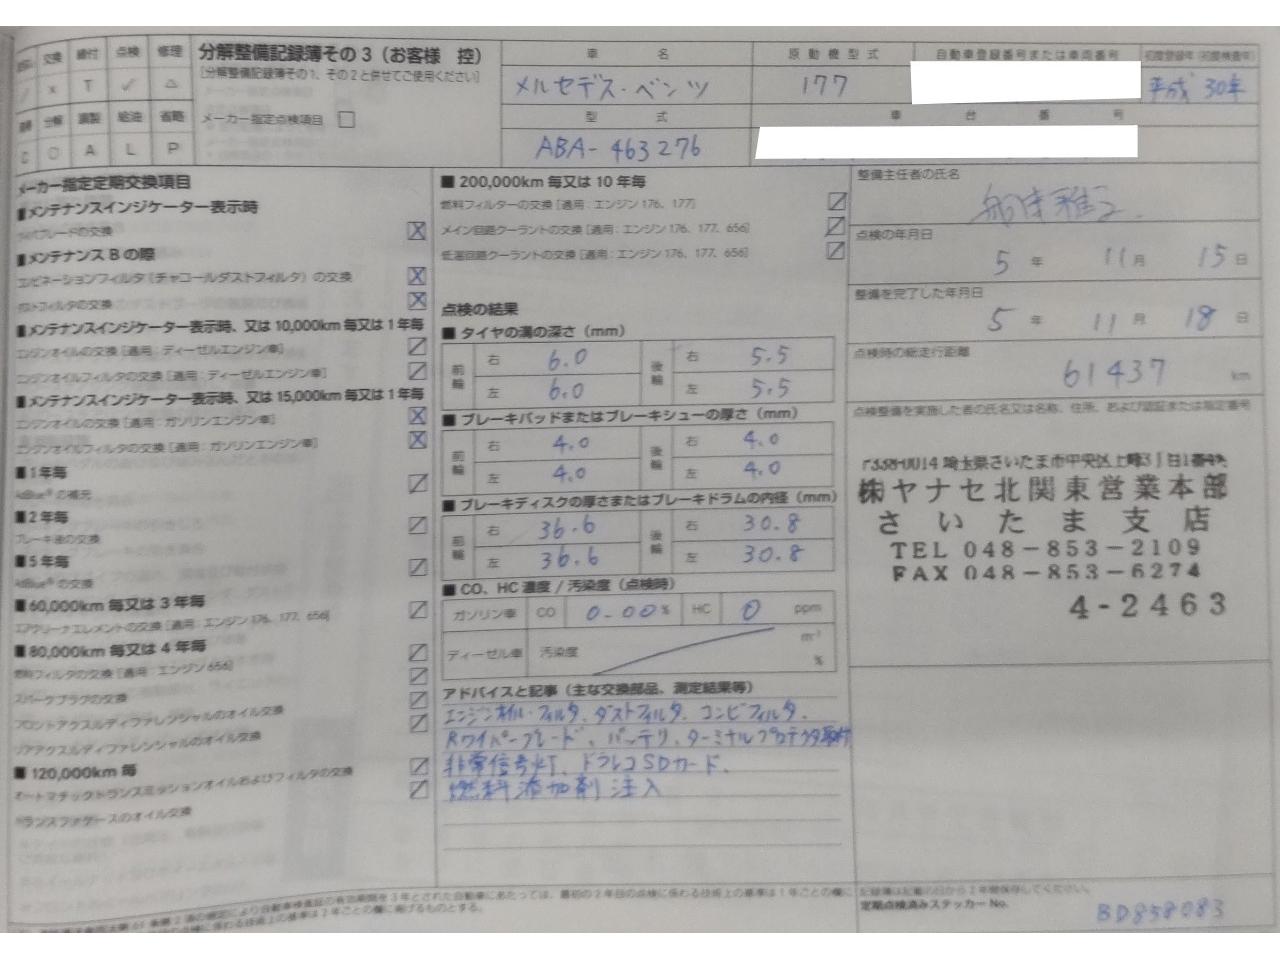 交換 締付 点検 修理
x T ✓ △
分解 調製 給油 省略
C O A L P
分解整備記録簿その3（お客様 控）
[分解整備記録簿その1、その2と併せてご使用ください]
メーカー指定点検項目 □
車名
メルセデス・ベンツ
原動機型式
177
自動車登録番号または車両番号
初度登録年（初度検査年）
平成 30年
型式
ABA-463276
車台番号
メーカー指定定期交換項目
■メンテナンスインジケーター表示時
ブレードの交換
■メンテナンスBの際
コンビネーションフィルタ（チャコールダストフィルタ）の交換
ダストフィルタの交換
■メンテナンスインジケーター表示時、又は10,000km毎又は1年毎
エンジンオイルの交換［適用：ディーゼルエンジン車］
エンジンオイルフィルタの交換［適用：ディーゼルエンジン車］
■メンテナンスインジケーター表示時、又は15,000km毎又は1年毎
エンジンオイルの交換［適用：ガソリンエンジン車］
エンジンオイルフィルタの交換［適用：ガソリンエンジン車］
■1年毎
AdBlue®の補充
■2年毎
ブレーキ液の交換
■5年毎
AdBlue®の交換
■60,000km毎又は3年毎
エアクリーナエレメントの交換［適用：エンジン176、177、656］
■80,000km毎又は4年毎
燃料フィルタの交換［適用：エンジン656］
スパークプラグの交換
フロントアクスルディファレンシャルのオイル交換
リアアクスルディファレンシャルのオイル交換
■120,000km毎
オートマチックトランスミッションオイルおよびフィルタの交換
トランスファケースのオイル交換
■200,000km毎又は10年毎
燃料フィルターの交換［適用：エンジン176、177］
メイン回路クーラントの交換［適用：エンジン176、177、656］
低温回路クーラントの交換［適用：エンジン176、177、656］
点検の結果
■タイヤの溝の深さ（mm）
前輪 右 6.0 後輪 右 5.5
左 6.0 左 5.5
■ブレーキパッドまたはブレーキシューの厚さ（mm）
前輪 右 4.0 後輪 右 4.0
左 4.0 左 4.0
■ブレーキディスクの厚さまたはブレーキドラムの内径（mm）
前輪 右 36.6 後輪 右 30.8
左 36.6 左 30.8
■CO、HC濃度/汚染度（点検時）
ガソリン車 CO 0.00% HC 0 ppm
ディーゼル車 汚染度 m⁻¹
%
アドバイスと記事（主な交換部品、測定結果等）
エンジンオイル・フィルタ、ダストフィルタ、コンビフィルタ、
Rワイパーブレード、バッテリ、ターミナルプロテクタ取付
非常信号灯、ドラレコSDカード、
燃料添加剤注入
整備主任者の氏名
点検の年月日
5年 11月 15日
整備を完了した年月日
5年 11月 18日
点検時の総走行距離
61437 km
点検整備を実施した者の氏名又は名称、住所、および認証または指定番号
〒338-0014 埼玉県さいたま市中央区上峰3丁目1番
㈱ヤナセ北関東営業本部
さいたま支店
TEL 048-853-2109
FAX 048-853-6274
4-2463
自動車検査証の有効期間を3年とされた自動車にあたっては、最初の2年目の点検に係わる技術上の基準は1年ごとの欄に
技術上の基準は2年ごとの欄に掲げるものとする。
記録簿は記載の日から2年間保存してください。
定期点検済みステッカーNo.
BD858083